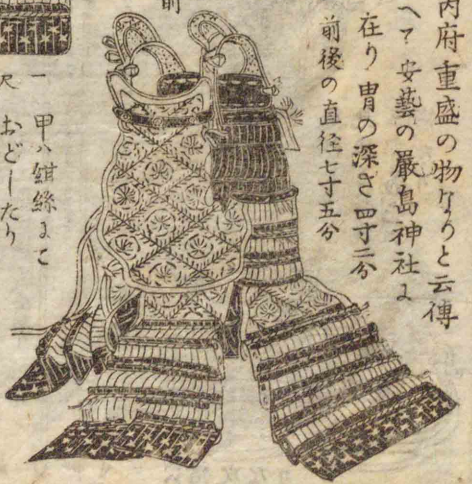 内府重盛の物なりと云傳
へて安藝の嚴島神社よ
在り冑の深さ四寸二分
前後の直径七寸五分
前
一 甲ハ紺絲まこ
尺 おどしたり